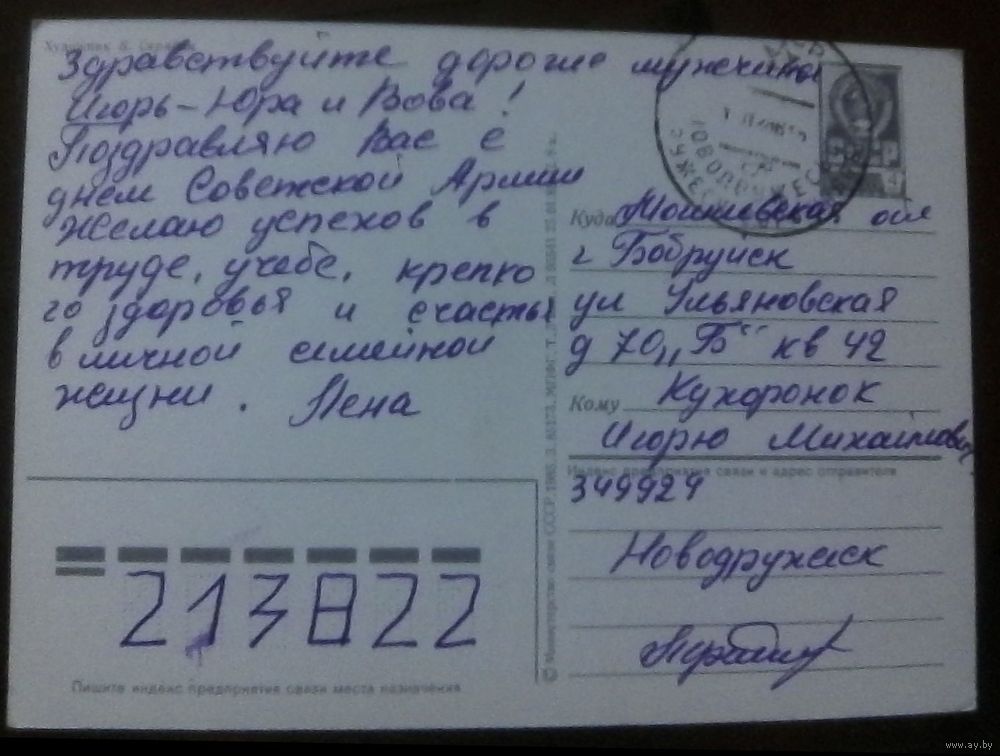 Здравствуйте дорогие мужчины
Игорь-Юра и Вова!
Поздравляю Вас с
днем Советской Армии
Желаю успехов в
труде, учебе, крепко
го здоровья и счастья
в личной семейной
жизни. Лена
Куда Могилевская обл
г Бобруйск
ул Ульяновская
д 70 „Б“ кв 42
Кому Кухоронок
Игорю Михайлович
Индекс предприятия связи и адрес отправителя
349924
Новодружеск
213822
Пишите индекс предприятия связи места назначения
www.ay.by